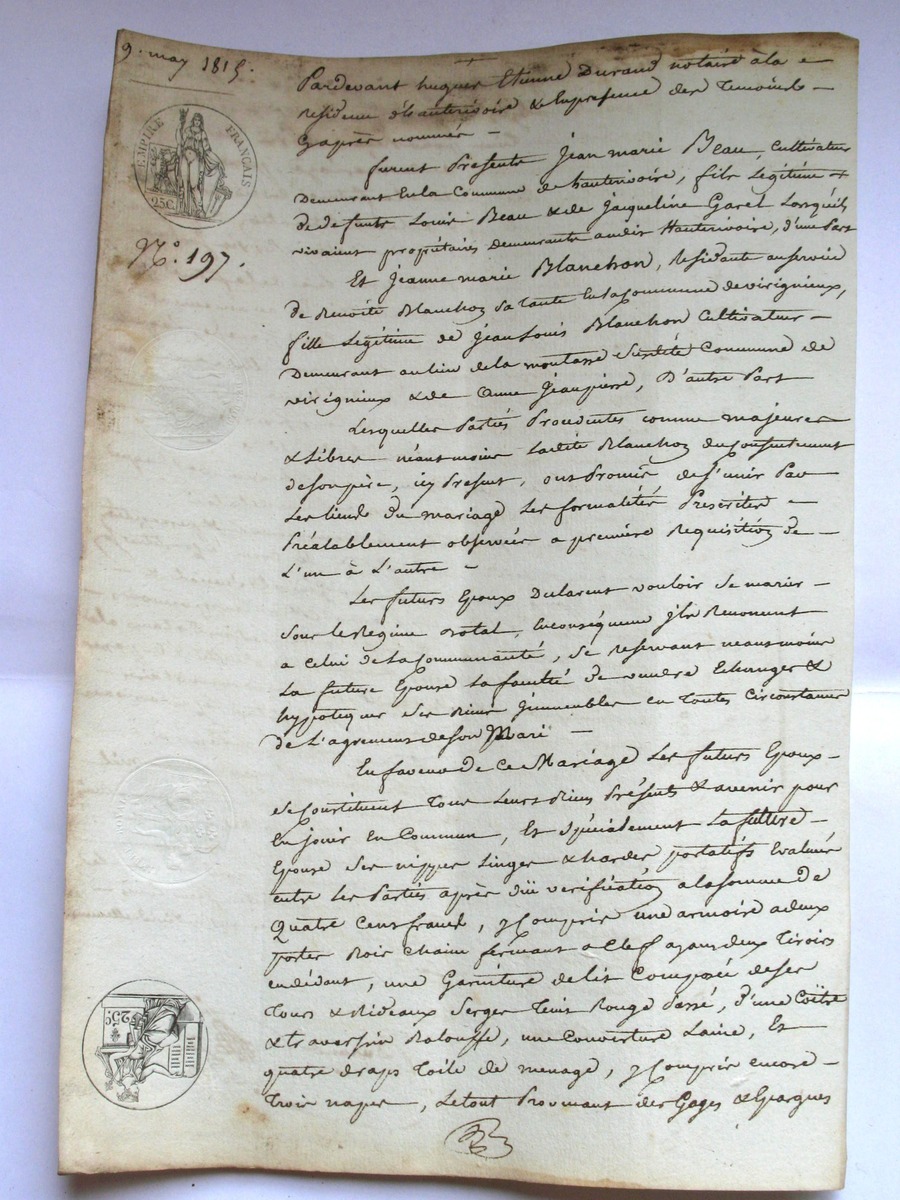 9. may 1815.
EMPIRE FRANÇAIS
25C.
N.o 197.
Pardevant hugues Etienne Durand notaire à la
residence d'hauterivoire & En presence des Temoins
Cy après nommés
furent Presents Jean marie Beau, Cultivateur
Demeurant En la Commune de hauterivoire, fils Légitime
de defunts Louis Beau & de Jacqueline Garel Lorsqu'ils
vivaient propriétaires demeurants audit Hauterivoire, d'une Part
Et Jeanne marie Blanchon, Residante au service
de Benoite Blanchon sa tante En la Commune de virigneux,
fille Légitime de Jean Louis Blanchon Cultivateur
Demeurant au lieu de la montasse Susdite Commune de
virignieux & de Anne Jeanpierre, D'autre Part
Lesquelles Parties Procedentes comme majeures
& Libres néantmoins Ladite Blanchon du Consentement
de son père, icy Present, ont Promis de s'unir Par
Les liens du mariage Les formalités Prescrites
Préalablement observées a première Requisition de
L'un à L'autre
Les futurs Epoux Declarent vouloir Se marier
Sous le Regime dotal, En conséquence ils Renoncent
a Celui de la Communauté, Se reservant neantmoins
La future Epouse La faculté de vendre Echanger &
hypotequer Ses Biens Jmmeubles en Toutes Circonstances
de L'agrement de Son Mari
En faveur de Ce Mariage Les futurs Epoux
Se Constituent Tous Leurs Biens Présents & avenir pour
En jouir En Commun, Et Spécialement La future
Epouse Ses nippes Linges & hardes portatifs Evalués
entre Les Parties après düe verification a la somme de
Quatre Cens francs, y Compris une armoire a deux
portes Bois Chaine fermant a Clef ayant deux Tiroirs
en dedans, une Garniture de lit Composée de ses
Tours & Rideaux Serges Teint Rouge Passé, d'une Coïtre
& traversin Balouffe, une Couverture Laine, Et
quatre draps Toile de menage, y Compris encore
Trois napes, Le tout Provenant des Gages & Epargnes
25C.